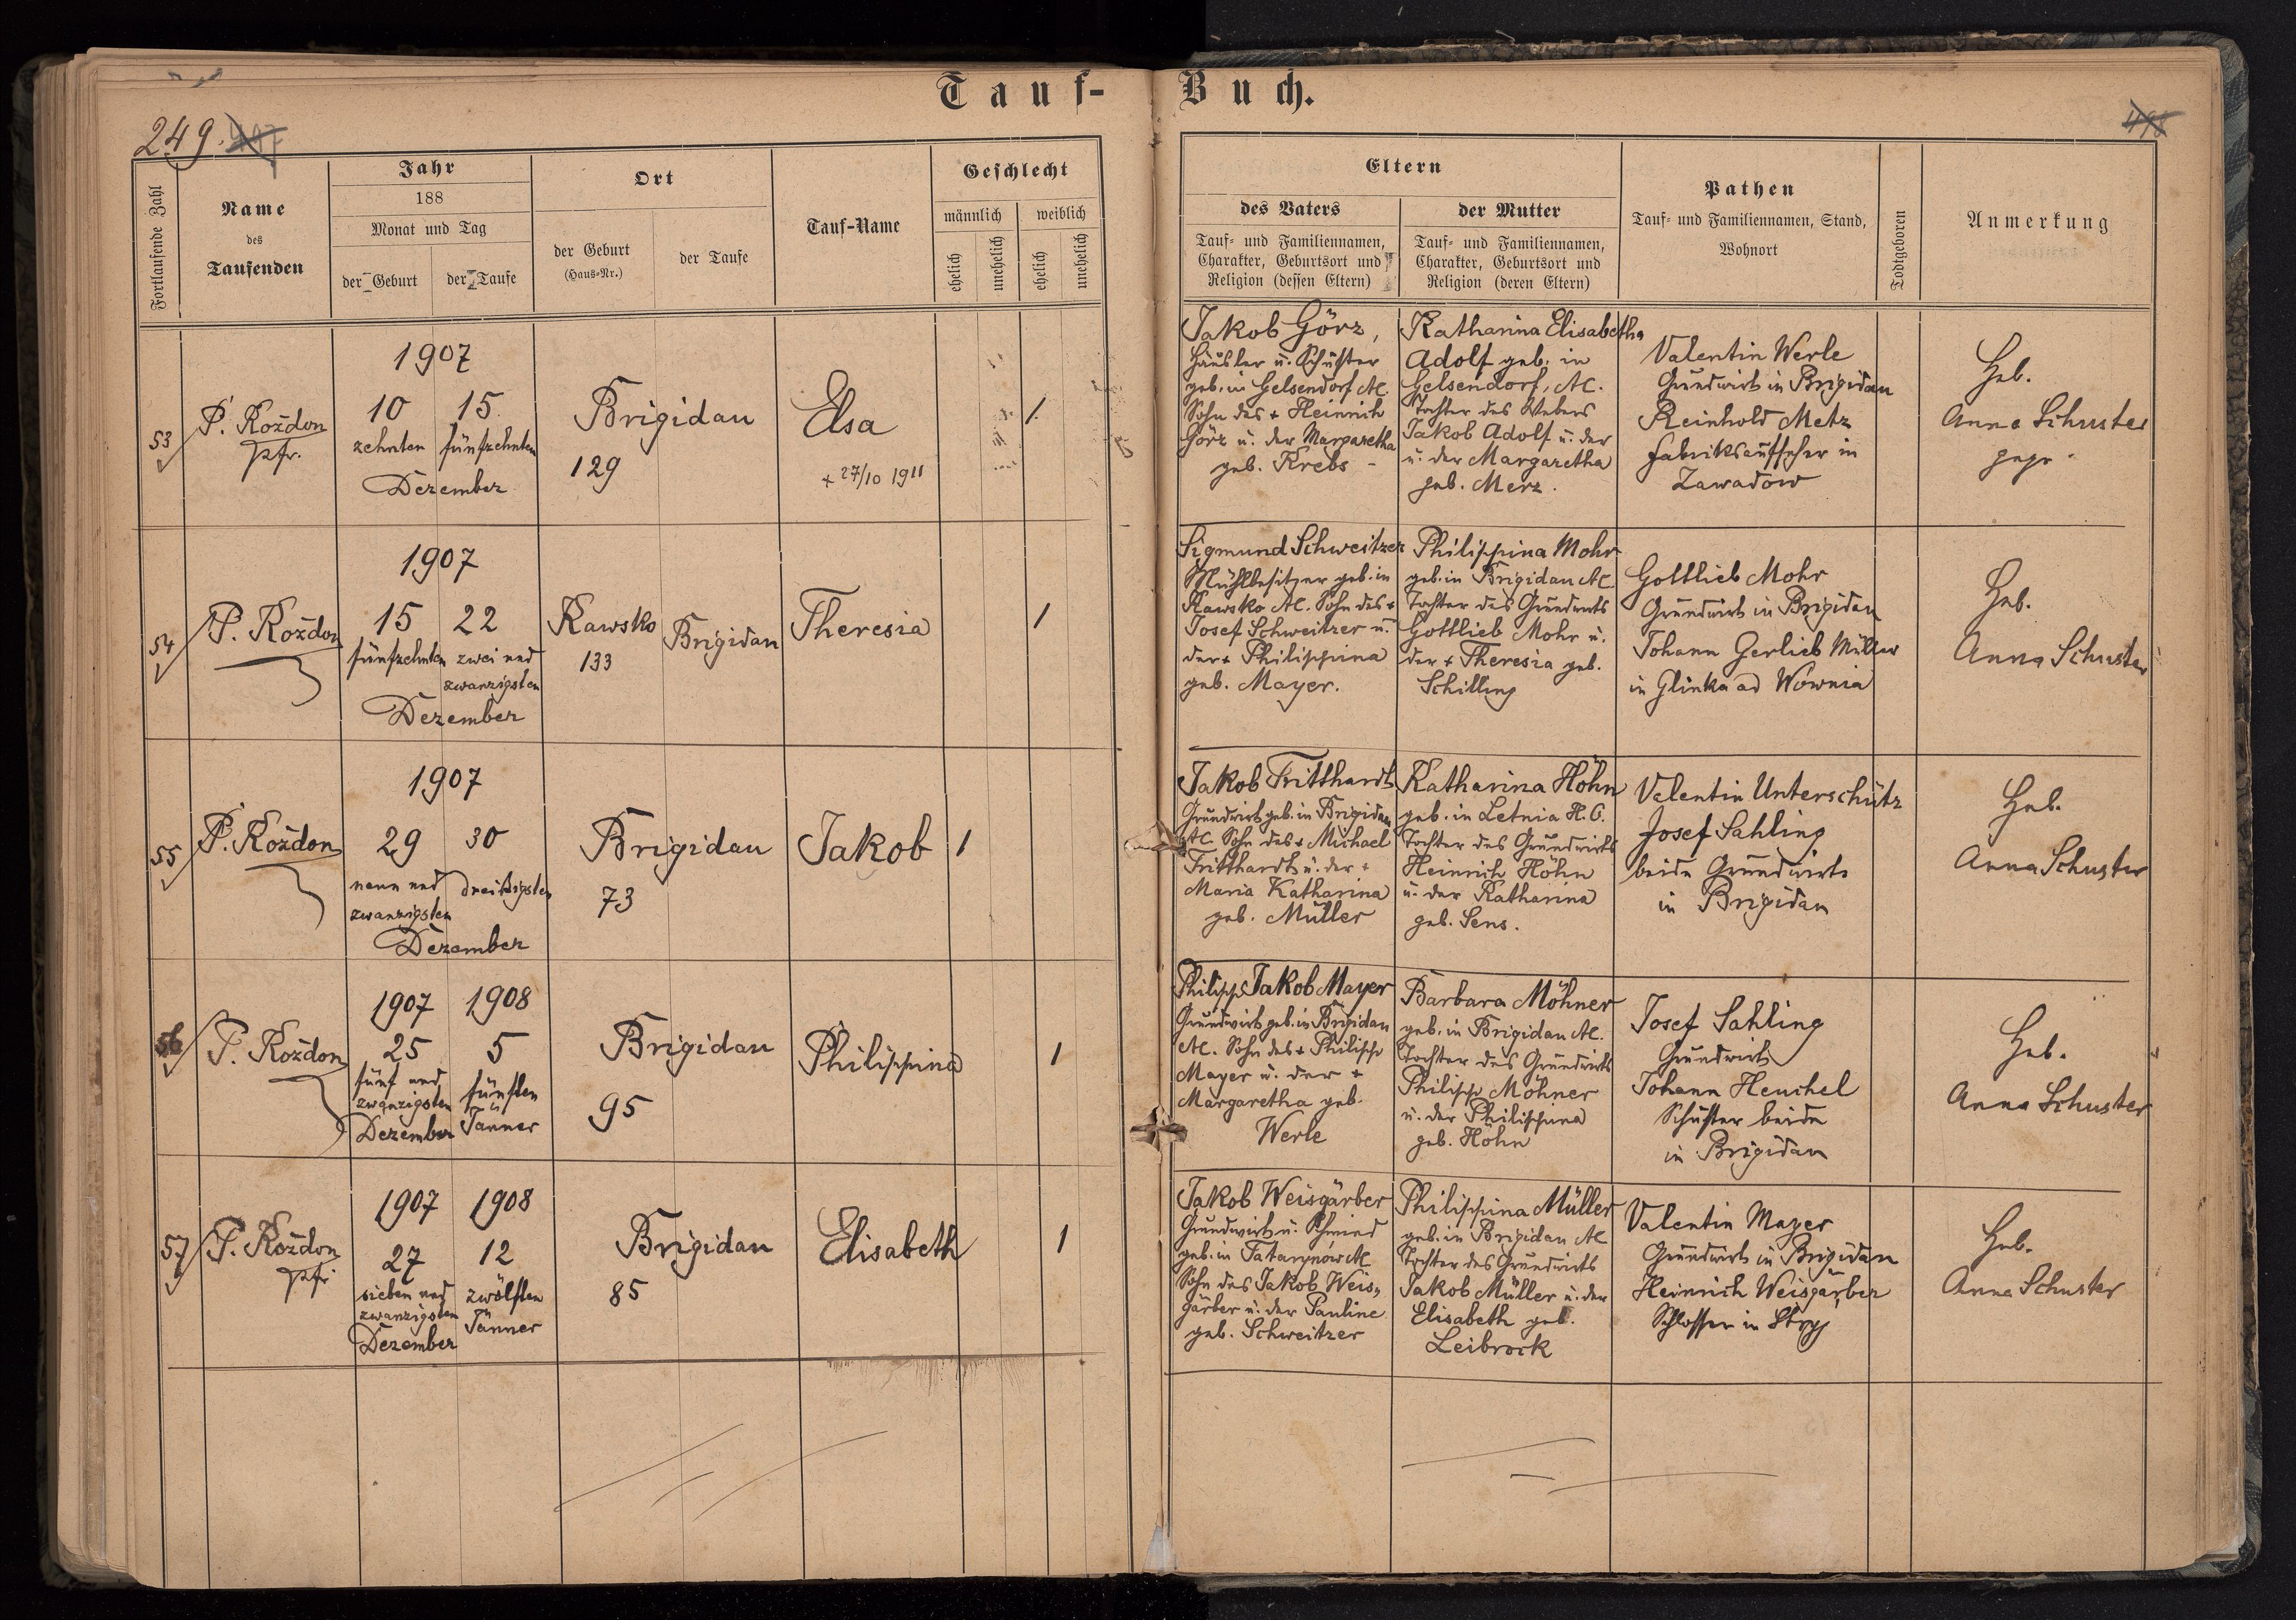 Tauf-Buch.
249.
Fortlaufende Zahl
Name
des
Taufenden
Jahr
188
Monat und Tag
der Geburt
der Taufe
Ort
der Geburt
(Haus-Nr.)
der Taufe
Tauf-Name
Geschlecht
männlich
weiblich
ehelich
unehelich
ehelich
unehelich
Eltern
des Vaters
Tauf- und Familiennamen,
Charakter, Geburtsort und
Religion (dessen Eltern)
der Mutter
Tauf- und Familiennamen,
Charakter, Geburtsort und
Religion (deren Eltern)
Pathen
Tauf- und Familiennamen, Stand,
Wohnort
Todtgeboren
Anmerkung
53
P. Kożdon
pfr.
1907
10
zehnten
15
fünfzehnten
Dezember
Brigidau
129
Elsa
+ 27/10 1911
1
Jakob Görz,
Häusler u. Schuster
geb. in Gelsendorf AC.
Sohn des + Heinrich
Görz u. der Margaretha
geb. Krebs -
Katharina Elisabetha
Adolf geb. in
Gelsendorf, AC.
Tochter des Webers
Jakob Adolf u. der
u. der Margaretha
geb. Merz.
Valentin Werle
Grundwirt in Brigidau
Reinhold Metz
Fabriksaufseher in
Zawadow
Heb.
Anna Schuster
gepr.
54
P. Kożdon
1907
15
fünfzehnten
22
zwei und
zwanzigsten
Dezember
Rawsko
133
Brigidau
Theresia
1
Sigmund Schweitzer
Mühlbesitzer geb. in
Rawsko AC. Sohn des +
Josef Schweitzer u.
der + Philippina
geb. Mayer.
Philippina Mohr
geb. in Brigidau AC
Tochter des Grundwirts
Gottlieb Mohr u.
der + Theresia geb.
Schilling
Gottlieb Mohr
Grundwirt in Brigidau
Johann Gerlieb Müller
in Glinka ad Wownia
Heb.
Anna Schuster
55
P. Kożdon
1907
29
neun und
zwanzigsten
30
dreißigsten
Dezember
Brigidau
73
Jakob
1
Jakob Tritthardt
Grundwirt geb. in Brigidau
AC. Sohn des + Michael
Tritthardt u. der +
Maria Katharina
geb. Müller
Katharina Höhn
geb. in Letnia H. C.
Tochter des Grundwirts
Heinrich Höhn
u. der Katharina
geb. Sens.
Valentin Unterschütz
Josef Sahling
beide Grundwirte
in Brigidau
Heb.
Anna Schuster
56
P. Kożdon
1907
25
fünf und
zwanzigsten
Dezember
1908
5
fünften
Jänner
Brigidau
95
Philippina
1
Philipp Jakob Mayer
Grundwirt geb. in Brigidau
AC. Sohn des + Philipp
Mayer u. der +
Margaretha geb.
Werle
Barbara Möhner
geb. in Brigidau AC.
Tochter des Grundwirts
Philipp Möhner
u. der Philippina
geb. Höhn
Josef Sahling
Grundwirt
Johann Henchel
Schuster beide
in Brigidau
Heb.
Anna Schuster
57
P. Kożdon
pfr.
1907
27
sieben und
zwanzigsten
Dezember
1908
12
zwölften
Jänner
Brigidau
85
Elisabeth
1
Jakob Weisgärber
Grundwirt u. Schmied
geb. in Tatarynow AC
Sohn des Jakob Weis-
gärber u. der Pauline
geb. Schweitzer
Philippina Müller
geb. in Brigidau AC
Tochter des Grundwirts
Jakob Müller u. der
Elisabeth geb.
Leibrock
Valentin Mayer
Grundwirt in Brigidau
Heinrich Weisgärber
Schlosser in Stryj
Heb.
Anna Schuster